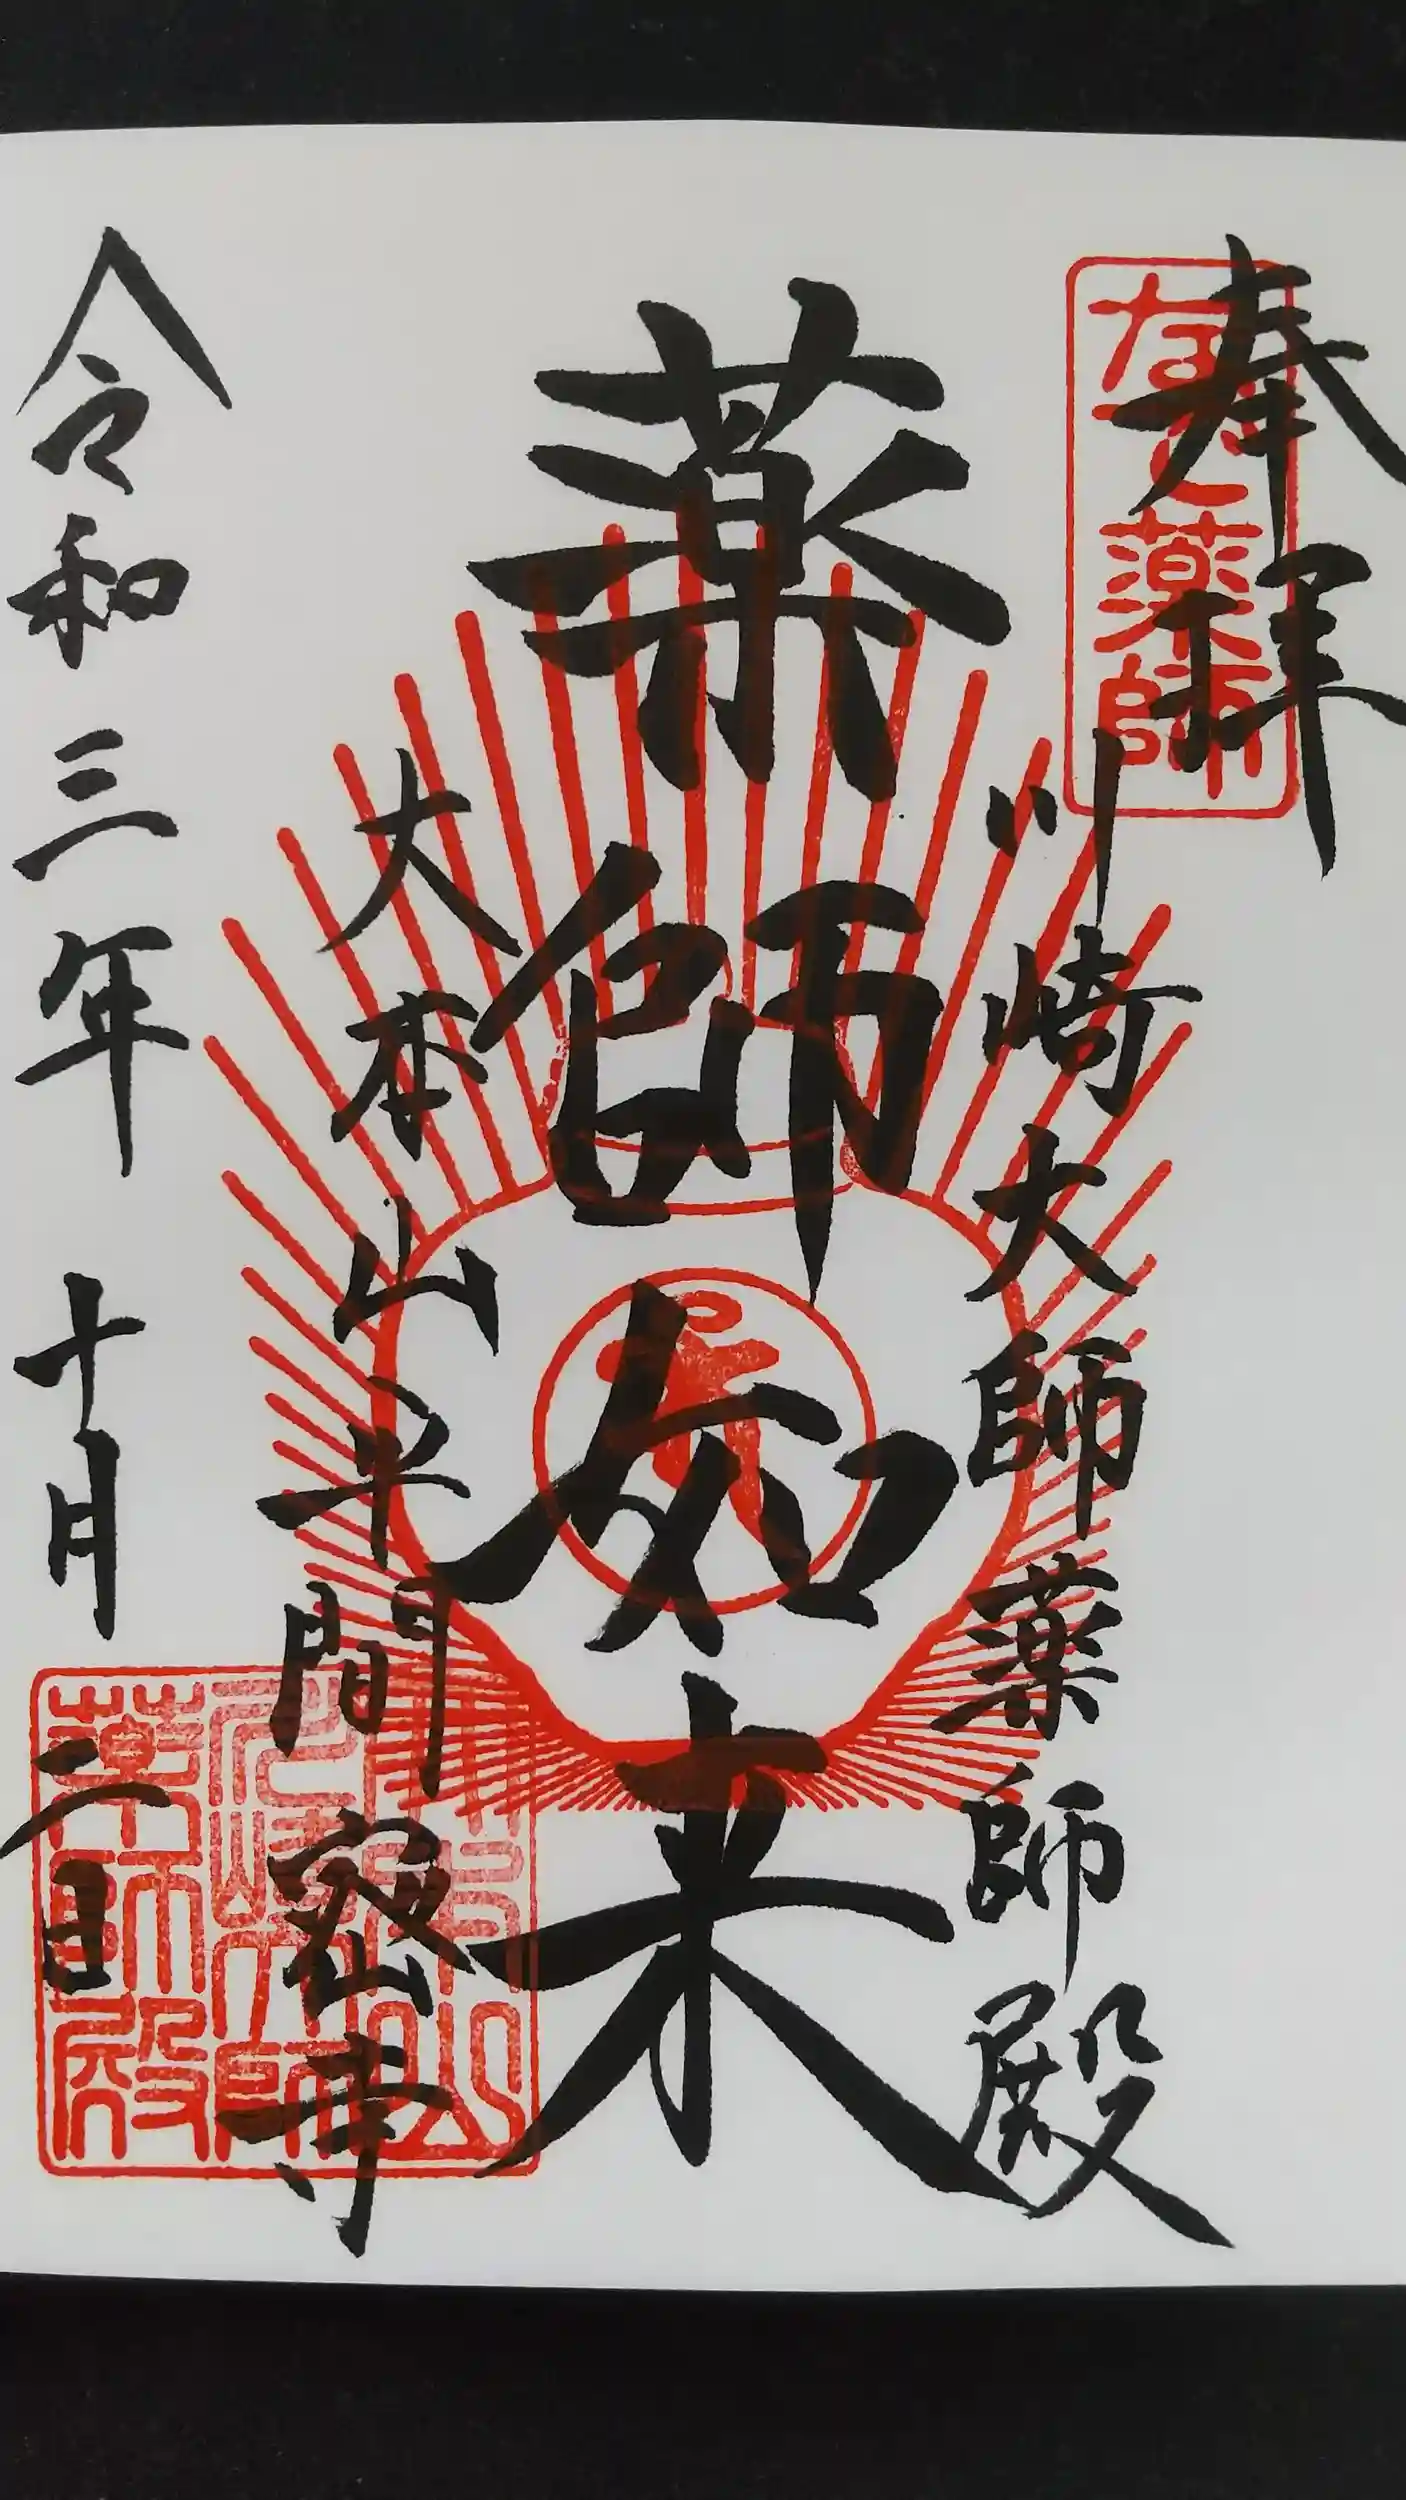 奉拝
なで薬師
川崎大師薬師殿
薬師如来
大本山平間密寺
令和三年十月二日
大本山
川崎大師
薬師殿